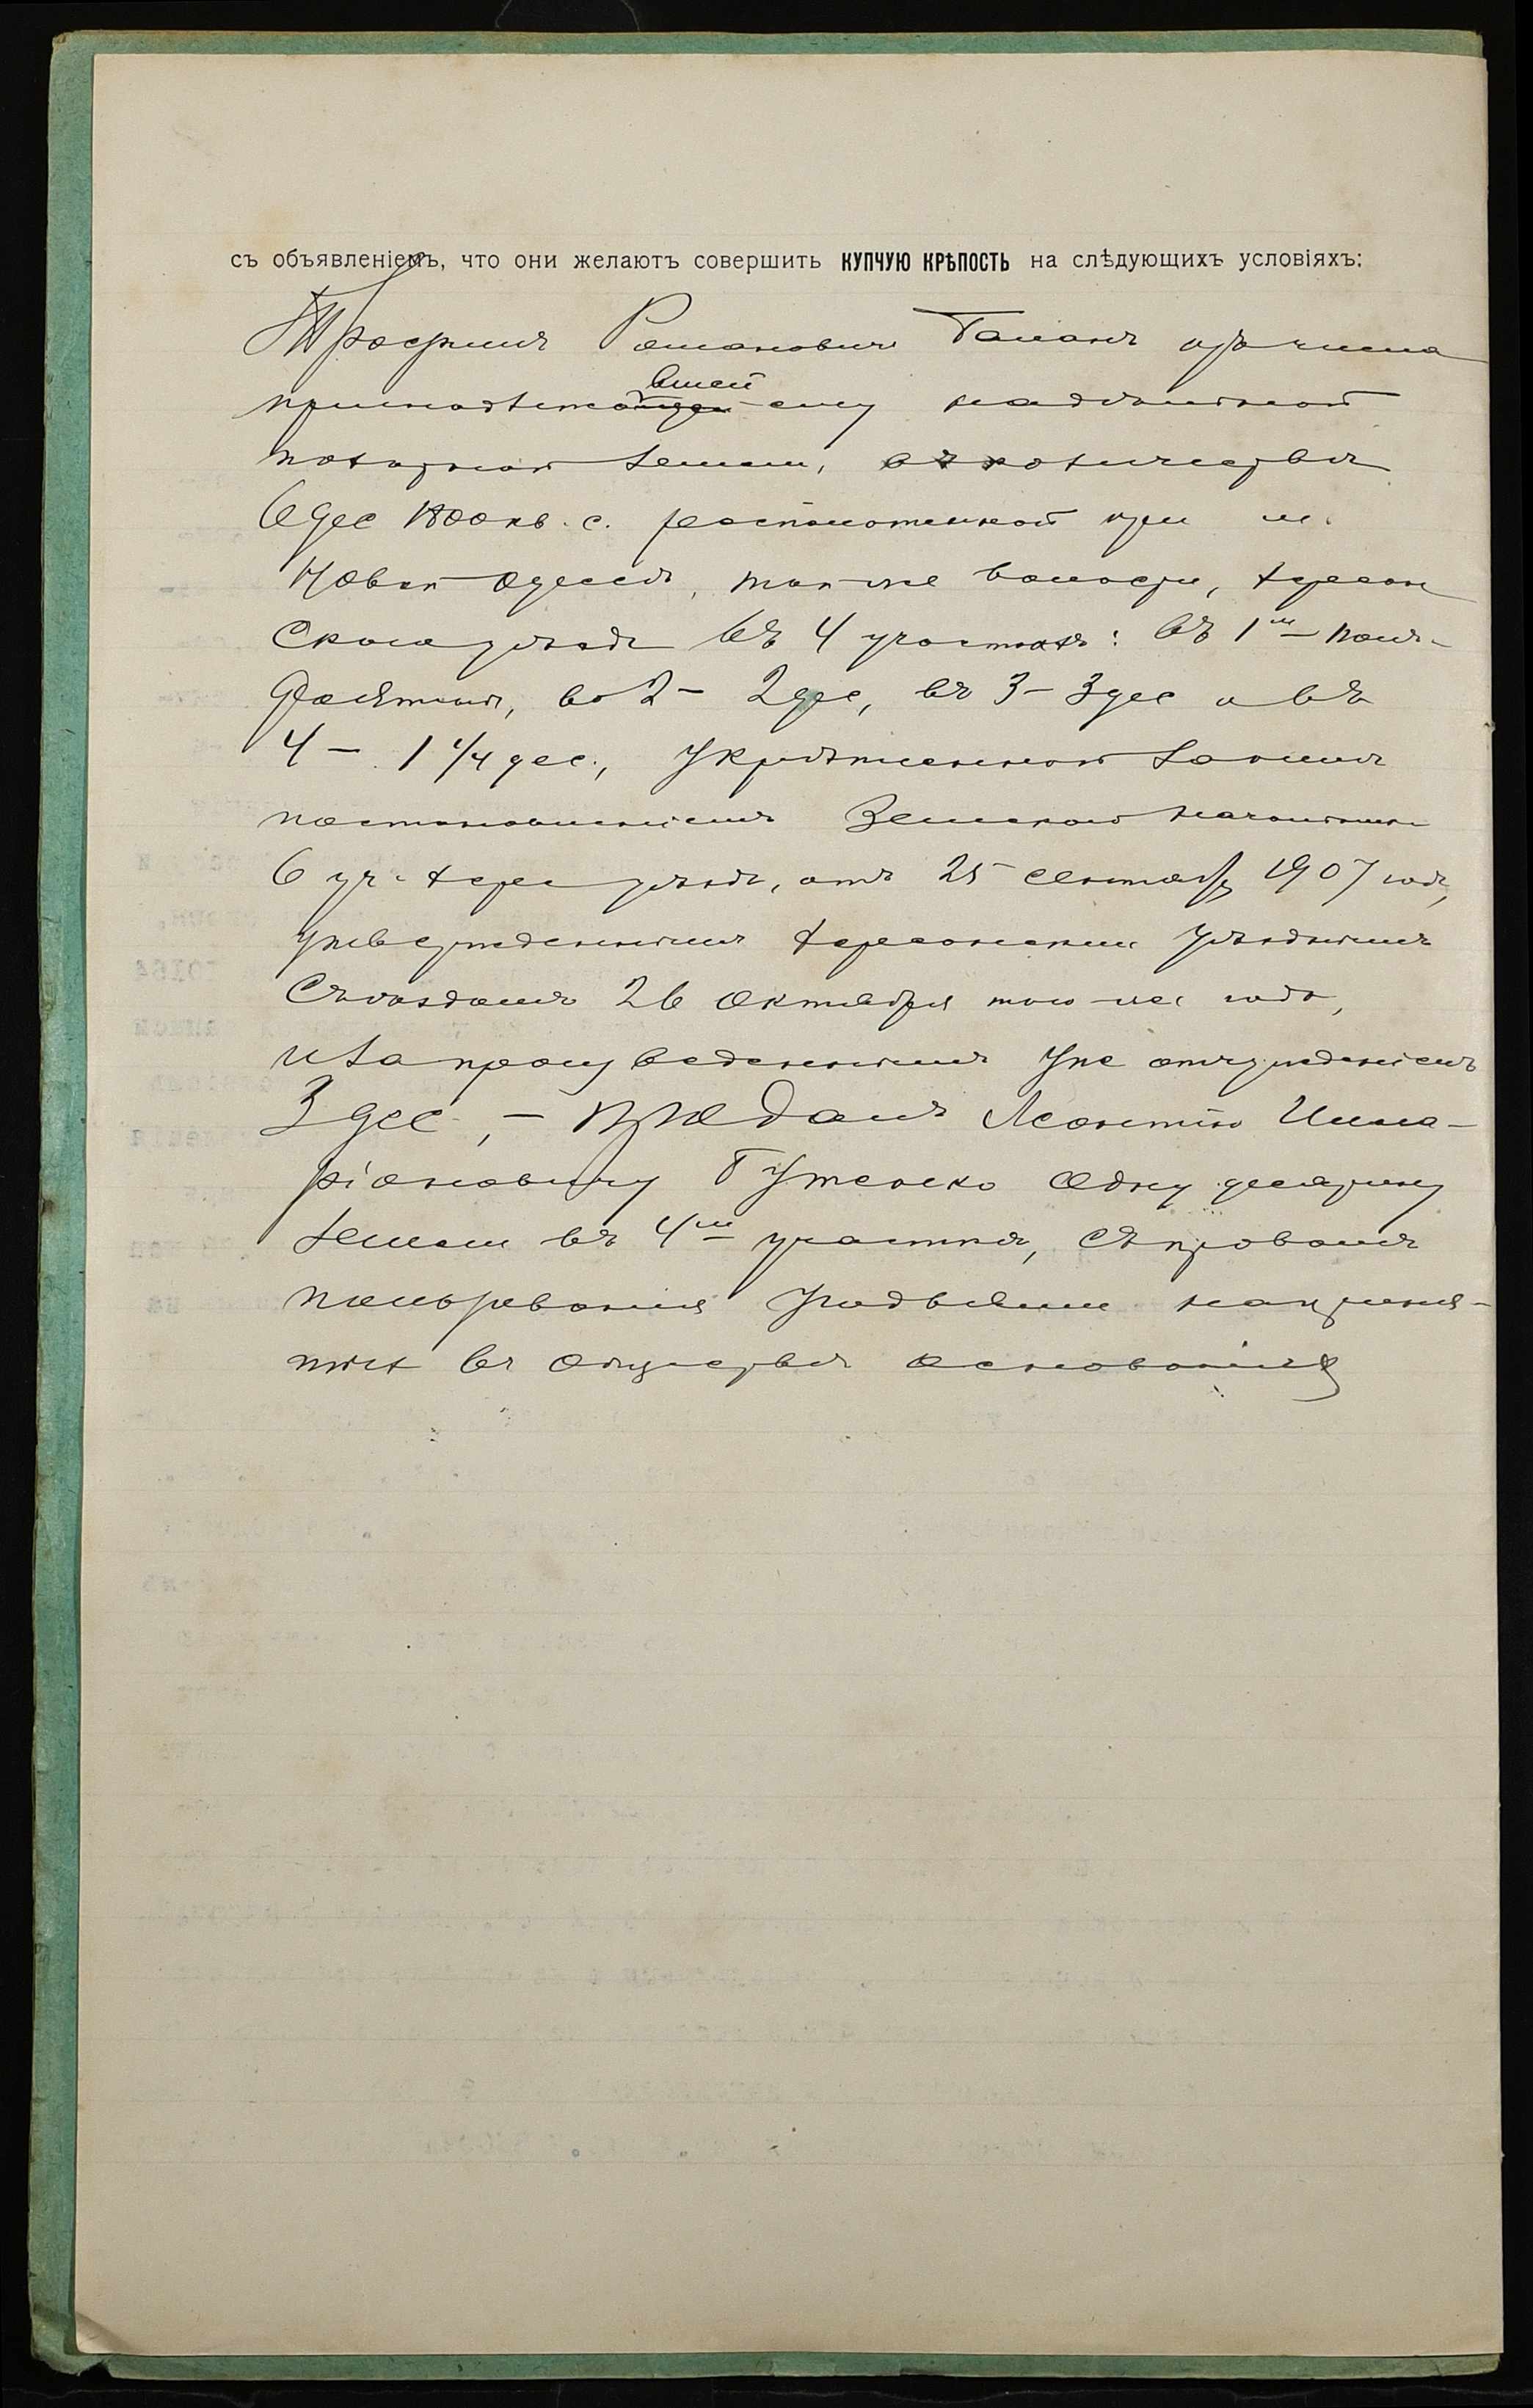 съ объявленіемъ, что они желаютъ совершить КУПЧУЮ КРѢПОСТЬ на слѣдующихъ условіяхъ:
Трофимъ Романовичъ Таманъ изъ числа
вшей
принадлежащей ему надѣльной
полевой земли, въ количествѣ
6 дес 1800 кв. с. расположенной при м.
Новой Одессѣ, той-же волости, Херсон
скаго уѣзда въ 4 участкахъ: въ 1м – полъ-
десятины, во 2 – 2 дес, въ 3 – 3 дес и въ
4 – 1 1/4 дес., Укрѣпленной за нимъ
постановленіемъ Земскаго Начальника
6 уч. Херс уѣзда, отъ 25 сентября 1907 года,
утвержденнымъ Херсонскимъ Уѣзднымъ
Съѣздомъ 26 Октября того-же года,
и за произведеннымъ уже отчужденіемъ
3 дес, – продалъ Леонтію Илла-
ріоновичу Гутенко одну десятину
земли въ 4м участкѣ, съ правомъ
пользованія угодьями на приня-
тыхъ въ обществѣ основаніяхъ